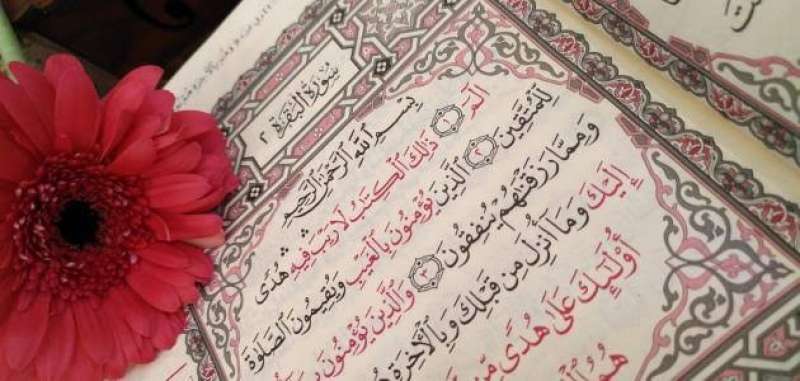 سورة البقرة ٢
بِسْمِ اللَّهِ الرَّحْمَٰنِ الرَّحِيمِ
الٓمٓ ١ ذَٰلِكَ الْكِتَابُ لَا رَيْبَ فِيهِ هُدًى
لِلْمُتَّقِينَ ٢ الَّذِينَ يُؤْمِنُونَ بِالْغَيْبِ وَيُقِيمُونَ الصَّلَاةَ
وَمِمَّا رَزَقْنَاهُمْ يُنْفِقُونَ ٣ وَالَّذِينَ يُؤْمِنُونَ
إِلَيْكَ وَمَا أُنْزِلَ مِنْ قَبْلِكَ وَبِالْآخِرَةِ
أُولَٰئِكَ عَلَىٰ هُدًى مِنْ
هُمُ